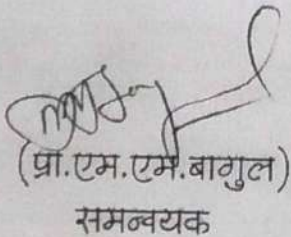 (प्रा.एम.एम.बागुल)
समन्वयक